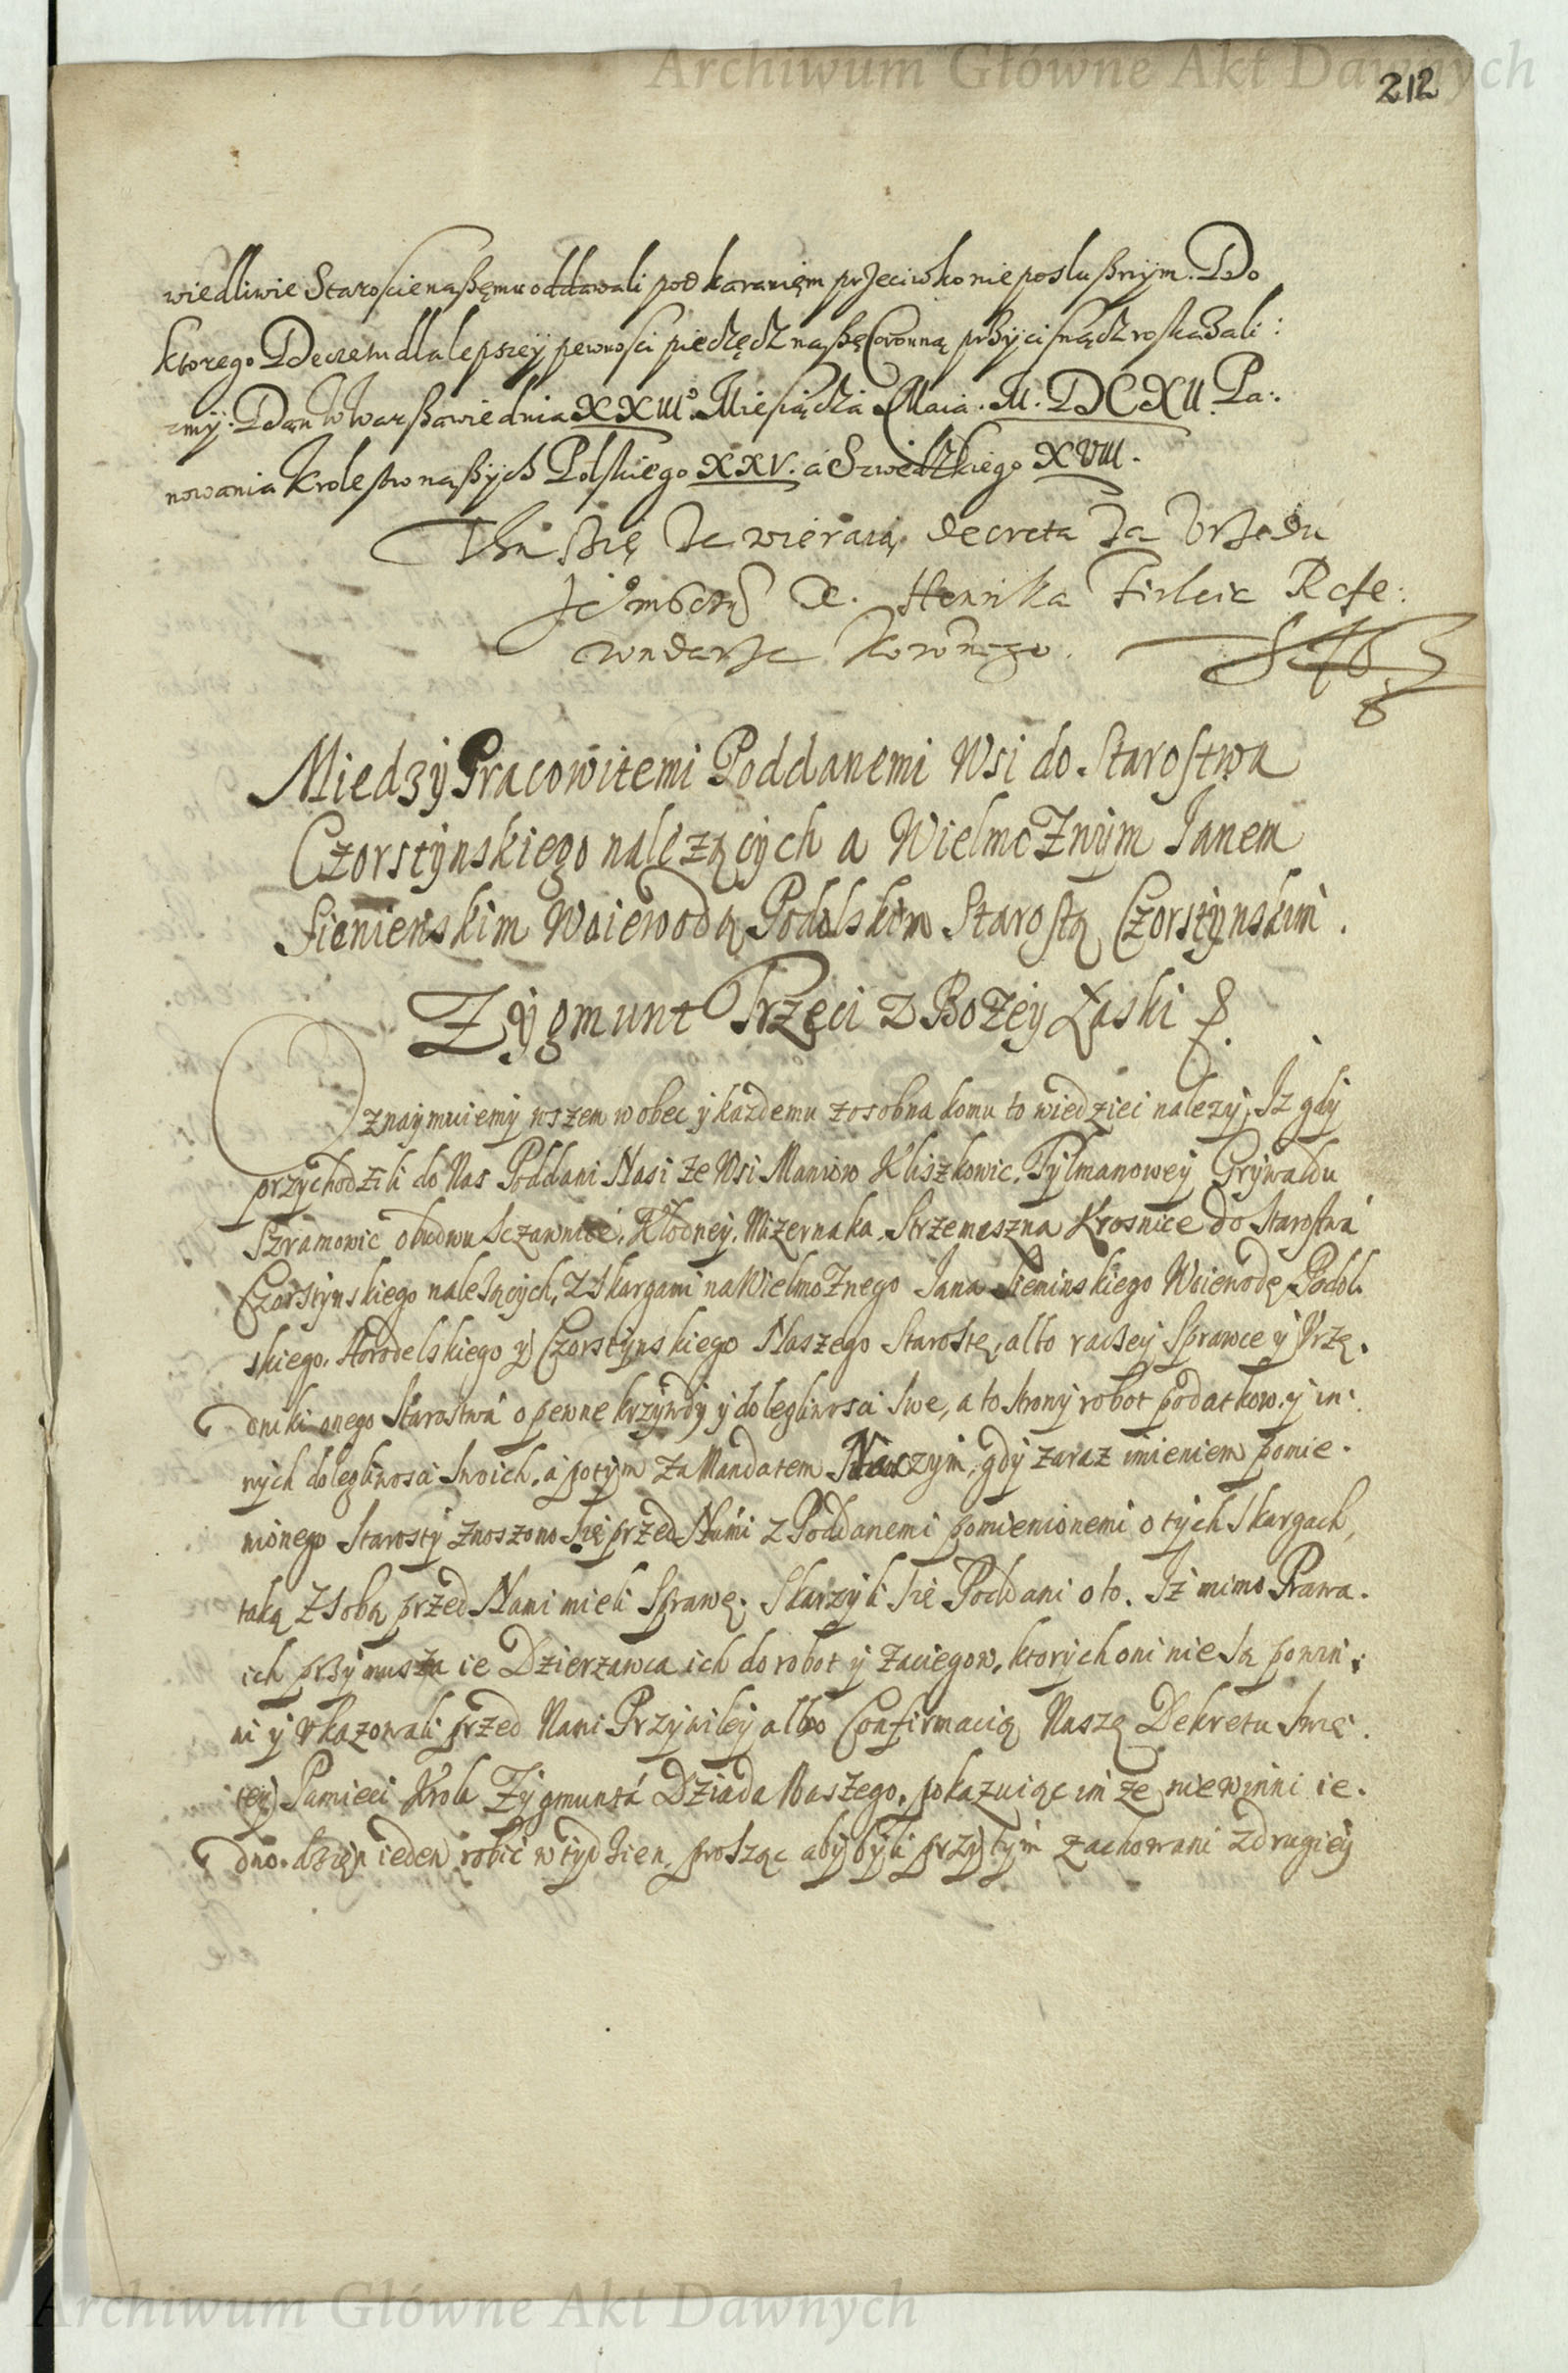 Archiwum Główne Akt Dawnych
212
wiedliwie Staroscie naßęmu oddawali pod karanięm przeciwko nie posłußnÿm. Do
ktorego Decretu dla lepszeÿ pewnosci pieczęć naßę Coronną przÿcisnąć roskazali:
zmÿ. Dan W Warßawie dnia XXIII° Miesiąca Maia. M. DCXII. Pa:
nowania Krolestw naßÿch Polskiego XXV. a Szwedzkiego XVIII.
Thu się zawieraią decreta za Vrzędu
Je° Mści P. Henrika Firleia Refe:
rendarza Koronnego.
Miedzÿ Pracowitemi Poddanemi Wsi do Starostwa
Czorstÿnskiego należącÿch a Wielmożnÿm Janem
Sienienskim Woiewodą Podolskim Starostą Czorstÿnskim.
Zÿgmunt Trzeci Z Bożeÿ Łaski
Oznaÿmuiemÿ wszem wobec ÿ każdemu zosobna komu to wiedziec nalezÿ, Iz gdÿ
przÿchodzili do Nas Poddani Nasi ze Wsi Maniow Kliszkowic, Tÿlmanoweÿ Grÿwałdu
Szramowic obudwu Sczawnic, Kłodneÿ, Mizernaka, Strzemeszna Krosnice do Starostwa
Czorstÿnskiego należącÿch, z Skargami na Wielmożnego Jana Sieminskiego Woiewodę Podol.
skiego, Horodelskiego ÿ Czorstÿnskiego Naszego Starostę, albo raczeÿ Sprawce ÿ Vrzę.
dnika onego Starostwa o pewne krzÿwdÿ ÿ dolegliwosci swe, a to stronÿ robot podatkow ÿ in:
nÿch dolegliwosci swoich, a potÿm za Mandatem Naszÿm, gdÿ zaraz imieniem pomie.
nionego Starostÿ znoszono się przed Nami z Poddanemi pomienionemi o tÿch Skargach,
taką z sobą przed Nami mieli Sprawę. Skarzÿli sie Poddani o to. Iż mimo Prawa.
ich przÿmusza ie Dzierzawca ich do robot ÿ zaciegow, ktorÿch oni nie są powin:
ni ÿ Vkazowali przed Nami Przÿwileÿ albo Confirmacią Naszę Dekretu Swię.
teÿ Pamieci Krola Zÿgmunta Dziada Naszego, pokazuiąc im że niewinni ie.
dno. dzięn ieden robic w tÿdzien, prosząc abÿ bÿli przÿ tÿm zachowani z drugieÿ
Archiwum Główne Akt Dawnych